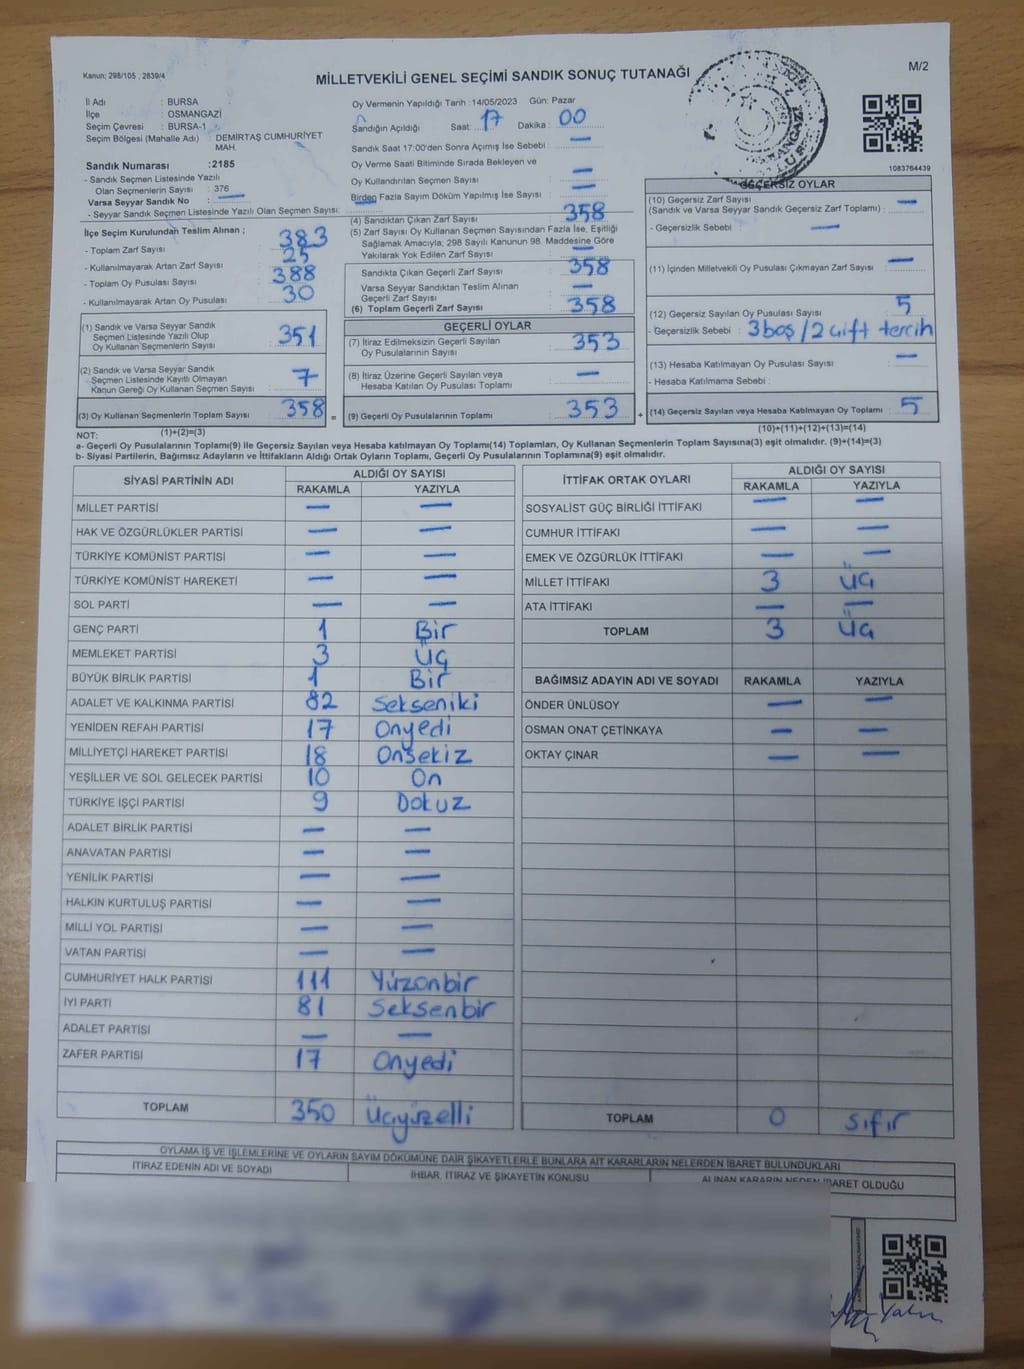 Kanun; 298/105 , 2839/4
MİLLETVEKİLİ GENEL SEÇİMİ SANDIK SONUÇ TUTANAĞI
M/2
İl Adı : BURSA
İlçe : OSMANGAZİ
Seçim Çevresi : BURSA-1
Seçim Bölgesi (Mahalle Adı) DEMİRTAŞ CUMHURİYET
MAH.
Sandık Numarası :2185
- Sandık Seçmen Listesinde Yazılı
Olan Seçmenlerin Sayısı : 376
Varsa Seyyar Sandık No : —
- Seyyar Sandık Seçmen Listesinde Yazılı Olan Seçmen Sayısı:
İlçe Seçim Kurulundan Teslim Alınan ;
- Toplam Zarf Sayısı : 383
- Kullanılmayarak Artan Zarf Sayısı : 25
- Toplam Oy Pusulası Sayısı : 388
- Kullanılmayarak Artan Oy Pusulası : 30
(1) Sandık ve Varsa Seyyar Sandık
Seçmen Listesinde Yazılı Olup
Oy Kullanan Seçmenlerin Sayısı : 351
(2) Sandık ve Varsa Seyyar Sandık
Seçmen Listesinde Kayıtlı Olmayan
Kanun Gereği Oy Kullanan Seçmen Sayısı : 7
(3) Oy Kullanan Seçmenlerin Toplam Sayısı : 358
(1)+(2)=(3)
Oy Vermenin Yapıldığı Tarih :14/05/2023 Gün: Pazar
Sandığın Açıldığı Saat: 17 Dakika : 00
Sandık Saat 17:00'den Sonra Açılmış İse Sebebi : —
Oy Verme Saati Bitiminde Sırada Bekleyen ve
Oy Kullandırılan Seçmen Sayısı : —
Birden Fazla Sayım Döküm Yapılmış İse Sayısı : —
(4) Sandıktan Çıkan Zarf Sayısı : 358
(5) Zarf Sayısı Oy Kullanan Seçmen Sayısından Fazla İse, Eşitliği
Sağlamak Amacıyla; 298 Sayılı Kanunun 98. Maddesine Göre
Yakılarak Yok Edilen Zarf Sayısı : —
Sandıkta Çıkan Geçerli Zarf Sayısı : 358
Varsa Seyyar Sandıktan Teslim Alınan
Geçerli Zarf Sayısı : —
(6) Toplam Geçerli Zarf Sayısı : 358
GEÇERLİ OYLAR
(7) İtiraz Edilmeksizin Geçerli Sayılan
Oy Pusulalarının Sayısı : 353
(8) İtiraz Üzerine Geçerli Sayılan veya
Hesaba Katılan Oy Pusulası Toplamı : —
= (9) Geçerli Oy Pusulalarının Toplamı : 353 +
1083764439
GEÇERSİZ OYLAR
(10) Geçersiz Zarf Sayısı
(Sandık ve Varsa Seyyar Sandık Geçersiz Zarf Toplamı) : —
- Geçersizlik Sebebi : —
(11) İçinden Milletvekili Oy Pusulası Çıkmayan Zarf Sayısı : —
(12) Geçersiz Sayılan Oy Pusulası Sayısı : 5
- Geçersizlik Sebebi : 3 boş / 2 çift tercih
(13) Hesaba Katılmayan Oy Pusulası Sayısı : —
- Hesaba Katılmama Sebebi :
(14) Geçersiz Sayılan veya Hesaba Katılmayan Oy Toplamı : 5
(10)+(11)+(12)+(13)=(14)
NOT:
a- Geçerli Oy Pusulalarının Toplamı(9) ile Geçersiz Sayılan veya Hesaba katılmayan Oy Toplamı(14) Toplamları, Oy Kullanan Seçmenlerin Toplam Sayısına(3) eşit olmalıdır. (9)+(14)=(3)
b- Siyasi Partilerin, Bağımsız Adayların ve İttifakların Aldığı Ortak Oyların Toplamı, Geçerli Oy Pusulalarının Toplamına(9) eşit olmalıdır.
SİYASİ PARTİNİN ADI ALDIĞI OY SAYISI
RAKAMLA YAZIYLA
MİLLET PARTİSİ — —
HAK VE ÖZGÜRLÜKLER PARTİSİ — —
TÜRKİYE KOMÜNİST PARTİSİ — —
TÜRKİYE KOMÜNİST HAREKETİ — —
SOL PARTİ — —
GENÇ PARTİ 1 Bir
MEMLEKET PARTİSİ 3 Üç
BÜYÜK BİRLİK PARTİSİ 1 Bir
ADALET VE KALKINMA PARTİSİ 82 Sekseniki
YENİDEN REFAH PARTİSİ 17 Onyedi
MİLLİYETÇİ HAREKET PARTİSİ 18 Onsekiz
YEŞİLLER VE SOL GELECEK PARTİSİ 10 On
TÜRKİYE İŞÇİ PARTİSİ 9 Dokuz
ADALET BİRLİK PARTİSİ — —
ANAVATAN PARTİSİ — —
YENİLİK PARTİSİ — —
HALKIN KURTULUŞ PARTİSİ — —
MİLLİ YOL PARTİSİ — —
VATAN PARTİSİ — —
CUMHURİYET HALK PARTİSİ 111 Yüzonbir
İYİ PARTİ 81 Seksenbir
ADALET PARTİSİ — —
ZAFER PARTİSİ 17 Onyedi
TOPLAM 350 Üçyüzelli
İTTİFAK ORTAK OYLARI ALDIĞI OY SAYISI
RAKAMLA YAZIYLA
SOSYALİST GÜÇ BİRLİĞİ İTTİFAKI — —
CUMHUR İTTİFAKI — —
EMEK VE ÖZGÜRLÜK İTTİFAKI — —
MİLLET İTTİFAKI 3 Üç
ATA İTTİFAKI — —
TOPLAM 3 Üç
BAĞIMSIZ ADAYIN ADI VE SOYADI RAKAMLA YAZIYLA
ÖNDER ÜNLÜSOY — —
OSMAN ONAT ÇETİNKAYA — —
OKTAY ÇINAR — —
TOPLAM 0 Sıfır
OYLAMA İŞ VE İŞLEMLERİNE VE OYLARIN SAYIM DÖKÜMÜNE DAİR ŞİKAYETLERLE BUNLARA AİT KARARLARIN NELERDEN İBARET BULUNDUKLARI
İTİRAZ EDENİN ADI VE SOYADI İHBAR, İTİRAZ VE ŞİKAYETİN KONUSU ALINAN KARARIN NEDEN İBARET OLDUĞU